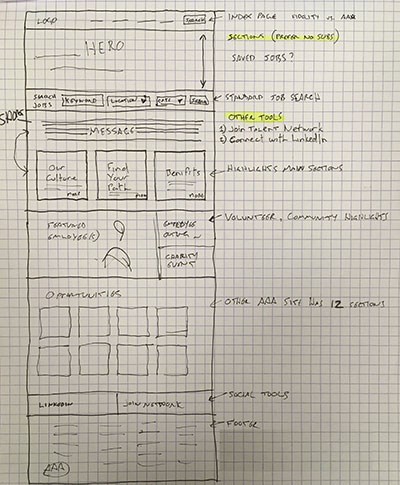 LOGO
SEARCH
INDEX PAGE
HERO
SECTIONS (PREFER NO SUBS)
SAVED JOBS?
SEARCH JOBS
KEYWORD
LOCATION
STANDARD JOB SEARCH
OTHER TOOLS
1) JOIN TALENT NETWORK
2) CONNECT WITH LINKEDIN
MESSAGE
Our Culture
more
Find Your Path
more
Benefits
more
HIGHLIGHTS MAIN SECTIONS
FEATURED
EMPLOYEE(S)
CHARITY
EVENT
VOLUNTEER, COMMUNITY HIGHLIGHTS
OPPORTUNITIES
OTHER AAA SITE HAS 12 SECTIONS
LINKEDIN
JOIN NETWORK
SOCIAL TOOLS
FOOTER
AAA